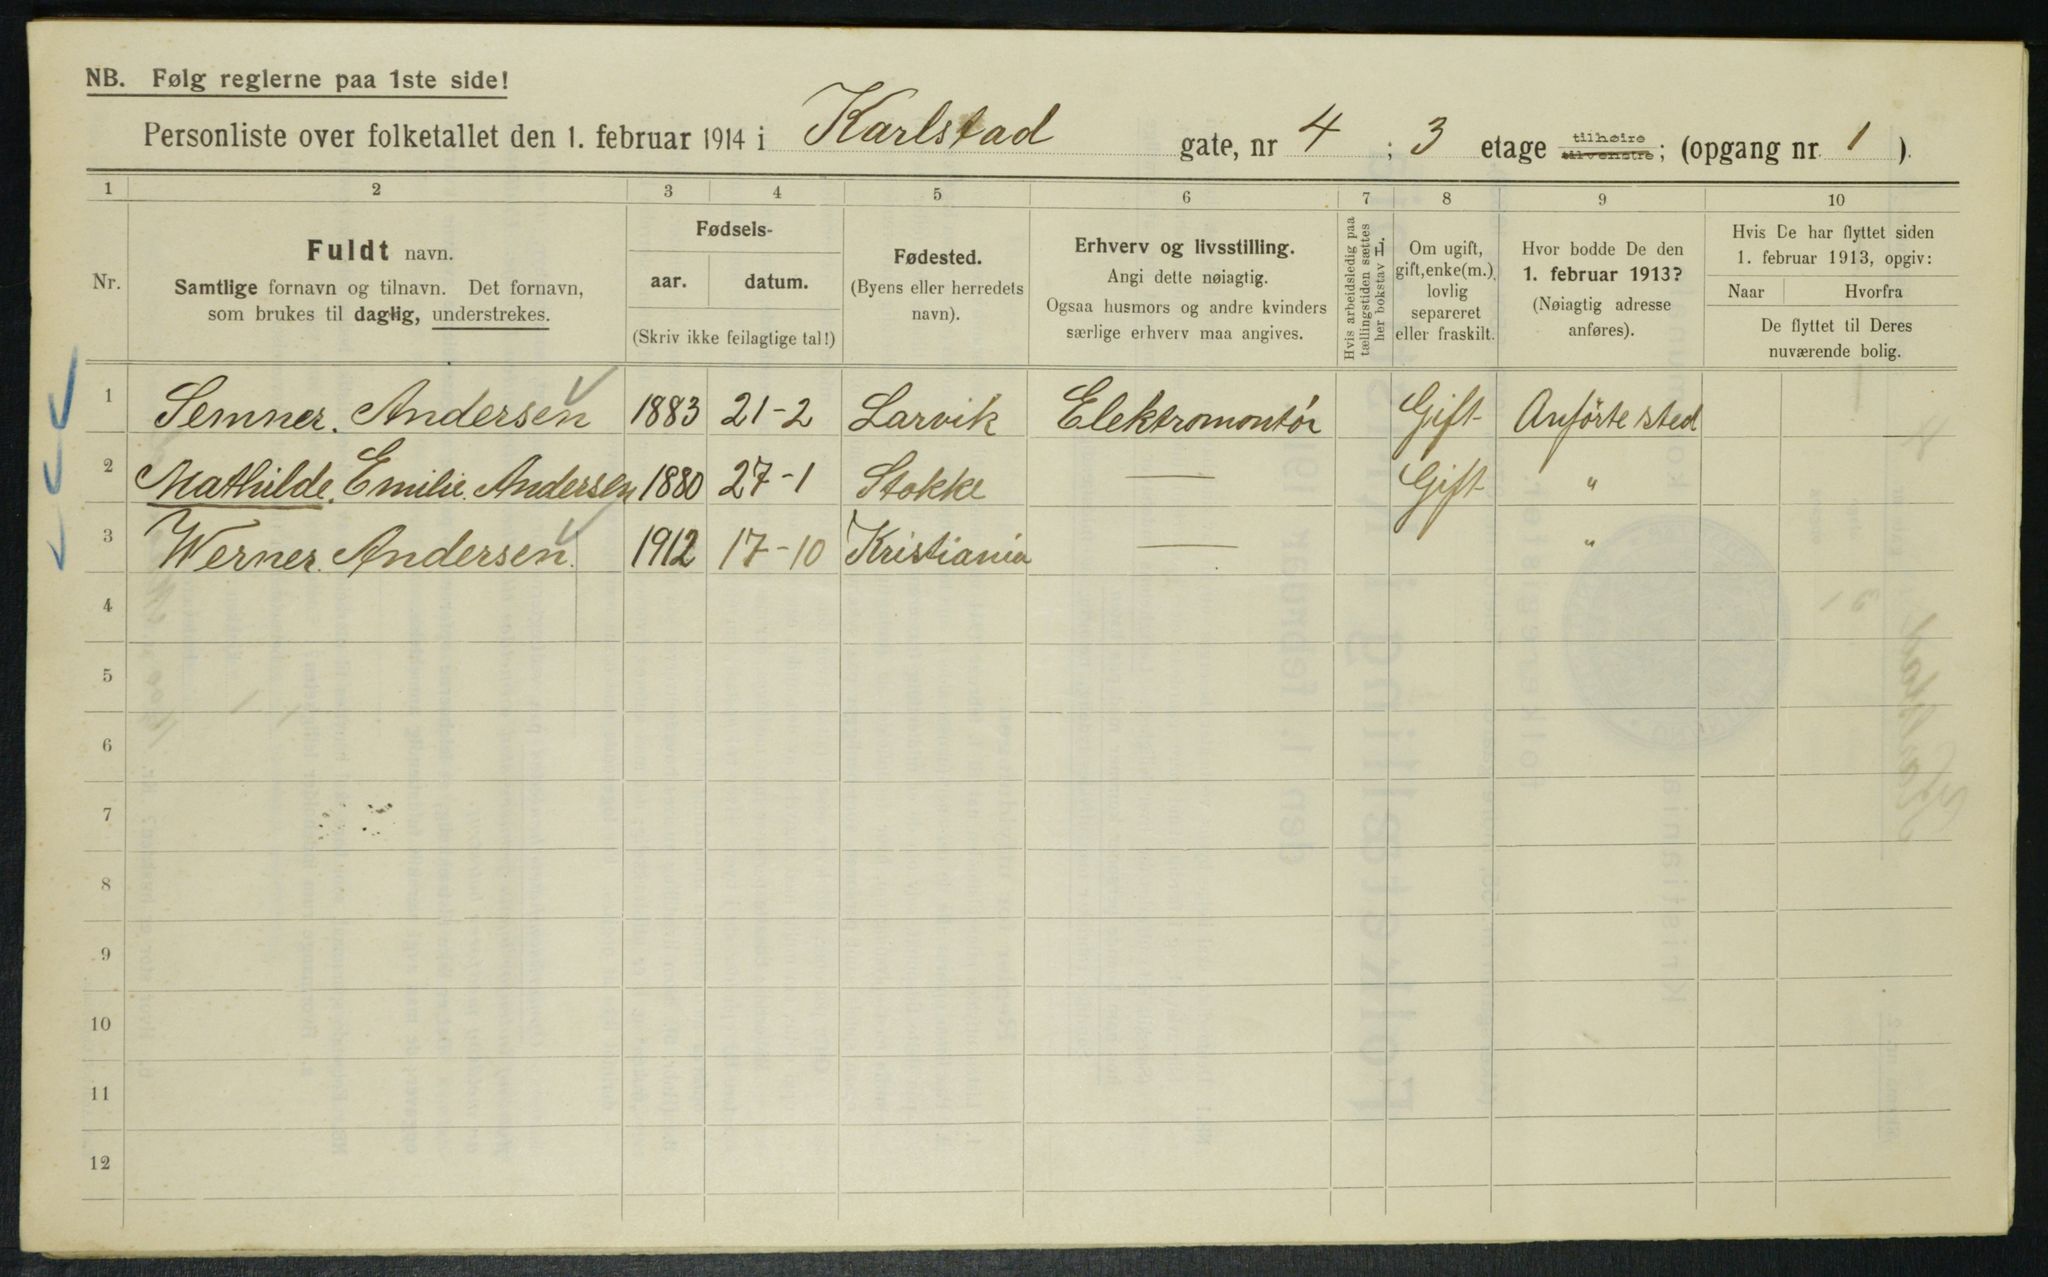 NB. Følg reglerne paa 1ste side!
Personliste over folketallet den 1. februar 1914 i Karlstad gate, nr 4 ; 3 etage tilhøire tilvenstre; (opgang nr. 1 ).
1 2 3 4 5 6 7 8 9 10
Nr.
Fuldt navn.
Samtlige fornavn og tilnavn. Det fornavn,
som brukes til daglig, understrekes.
Fødsels-
aar. datum.
(Skriv ikke feilagtige tal!)
Fødested.
(Byens eller herredets
navn).
Erhverv og livsstilling.
Angi dette nøiagtig.
Ogsaa husmors og andre kvinders
særlige erhverv maa angives.
Hvis arbeidsledig paa
tællingstiden sættes
her bokstav L.
Om ugift,
gift, enke(m.),
lovlig
separeret
eller fraskilt.
Hvor bodde De den
1. februar 1913?
(Nøiagtig adresse
anføres).
Hvis De har flyttet siden
1. februar 1913, opgiv:
Naar Hvorfra
De flyttet til Deres
nuværende bolig.
1 Semner. Andersen 1883 21-2 Larvik Elektromontór Gift Anførte sted
2 Mathilde. Emilie. Andersen 1880 27-1 Stokke — Gift "
3 Werner. Andersen. 1912 17-10 Kristiania — "
4
5
6
7
8
9
10
11
12